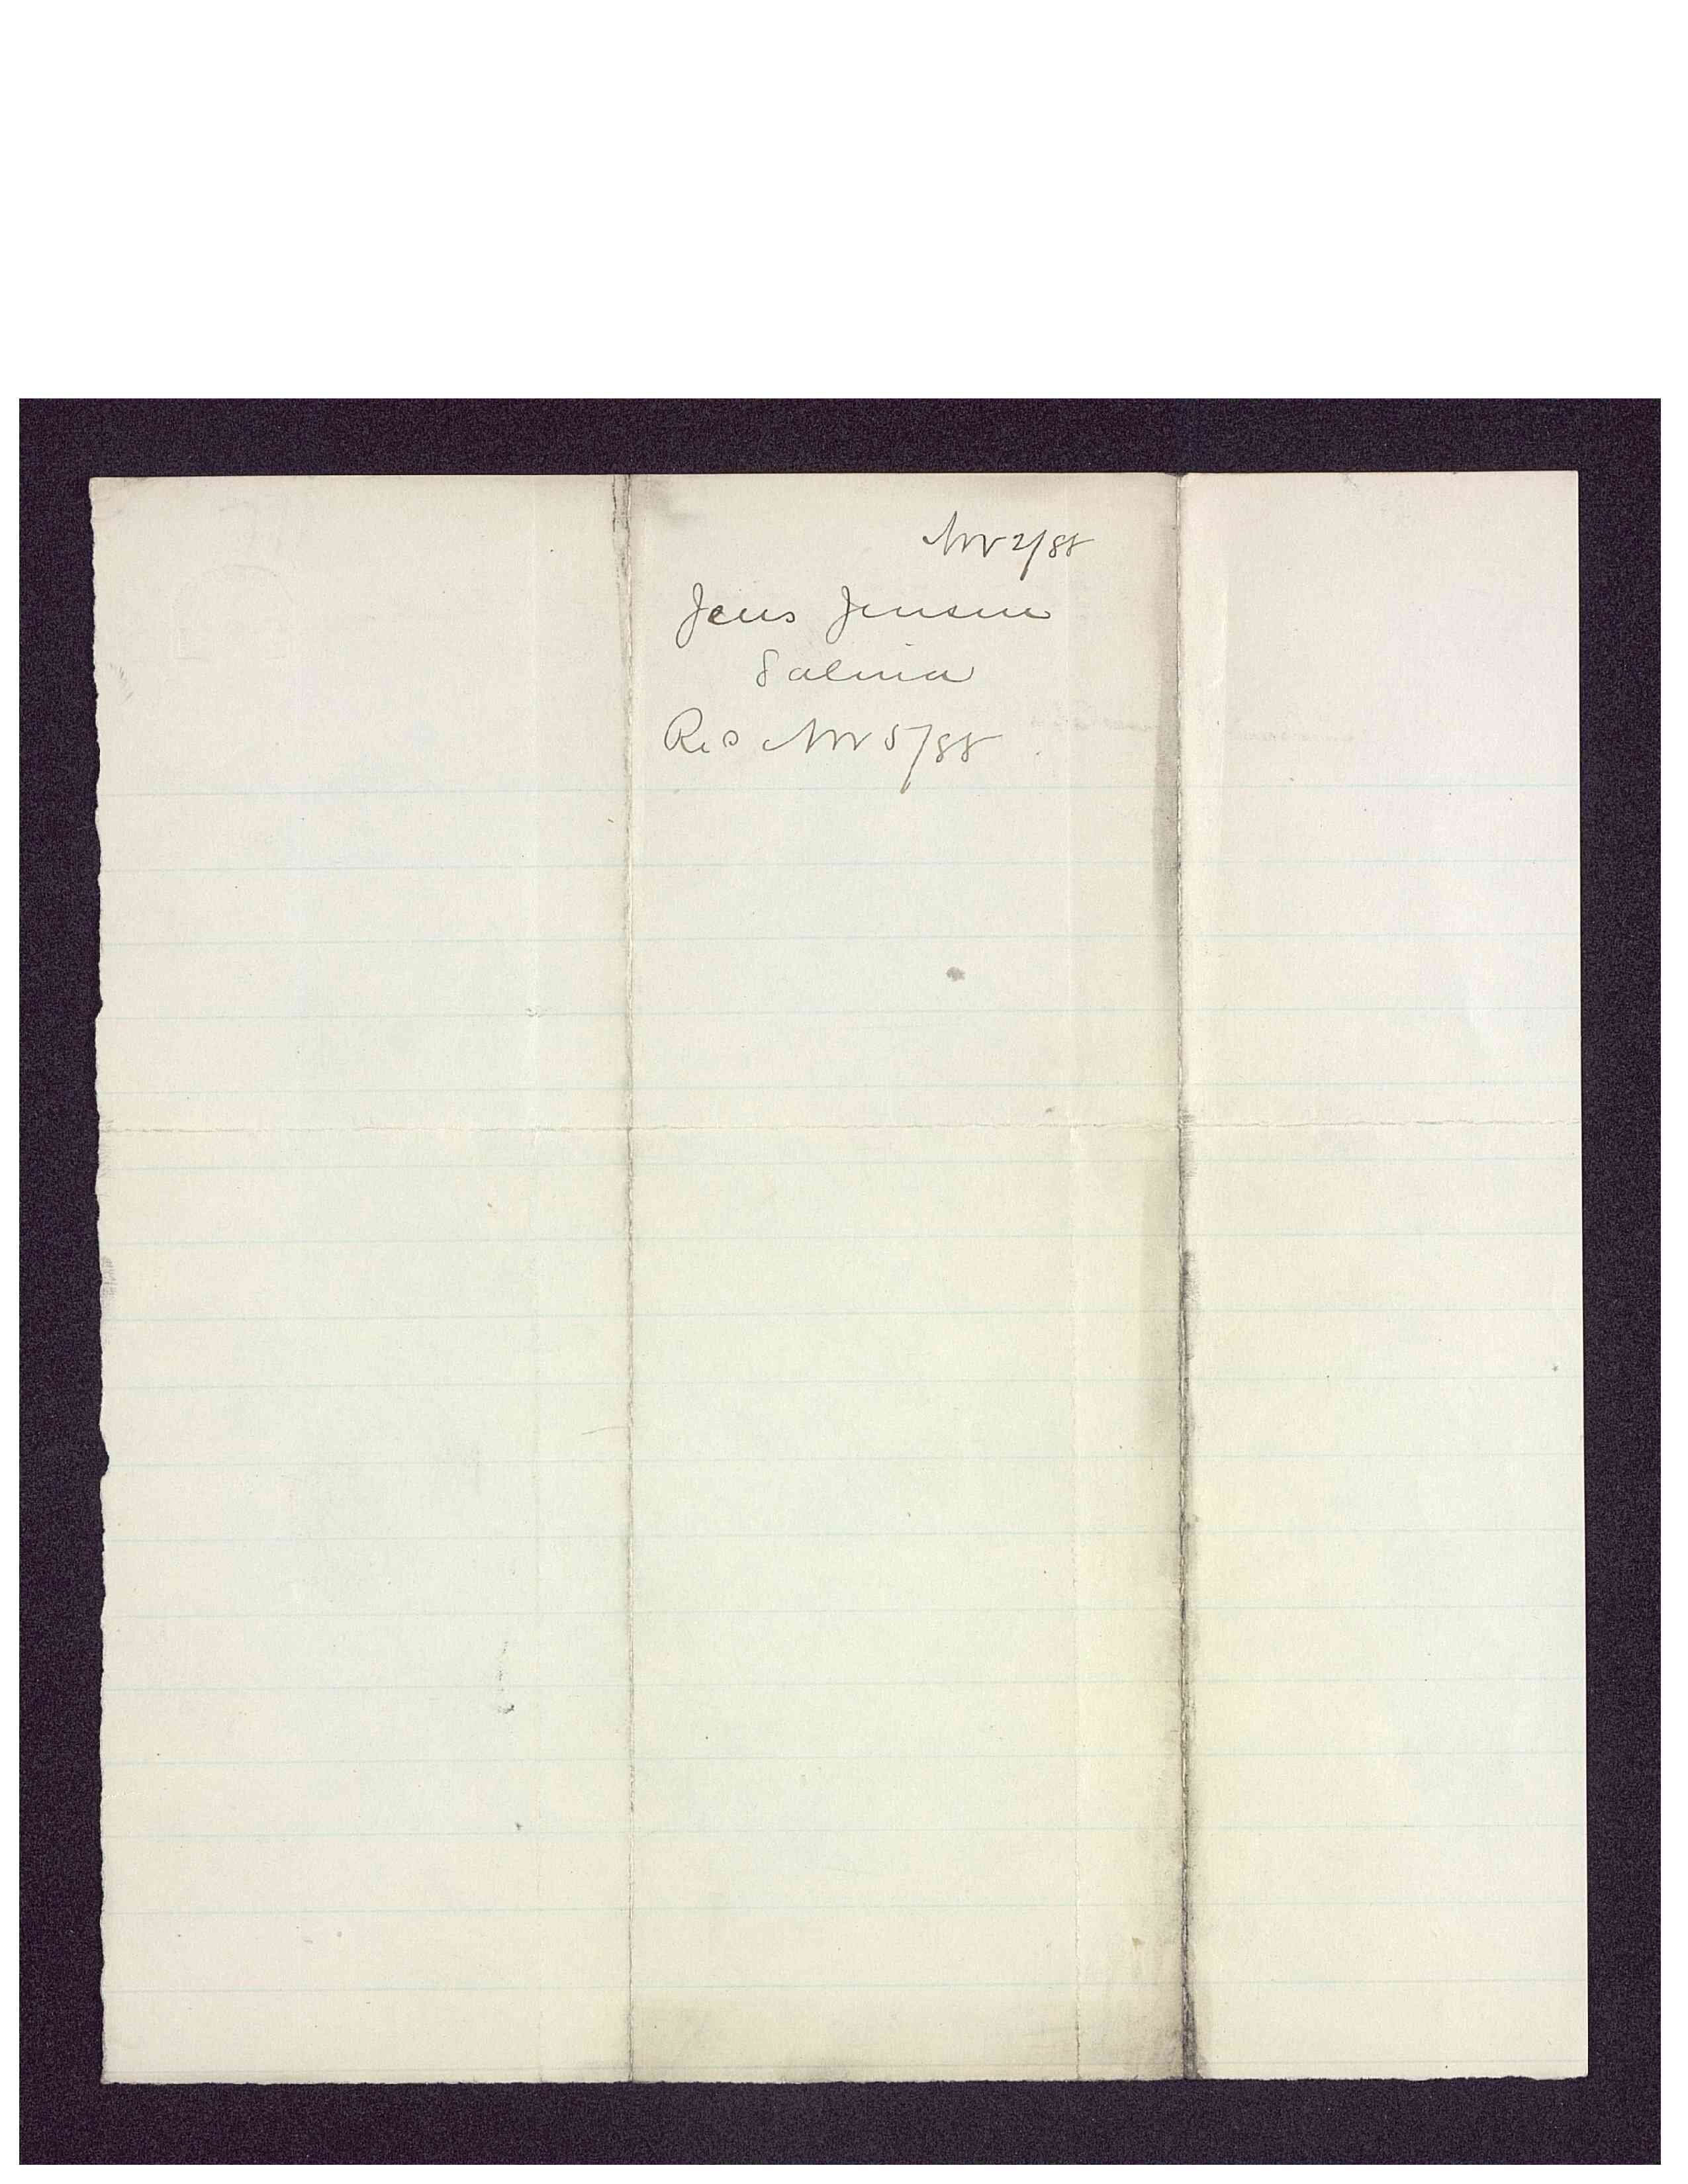 Nov 2/88
Jens Jensen
Salina
Rec Nov 5/88